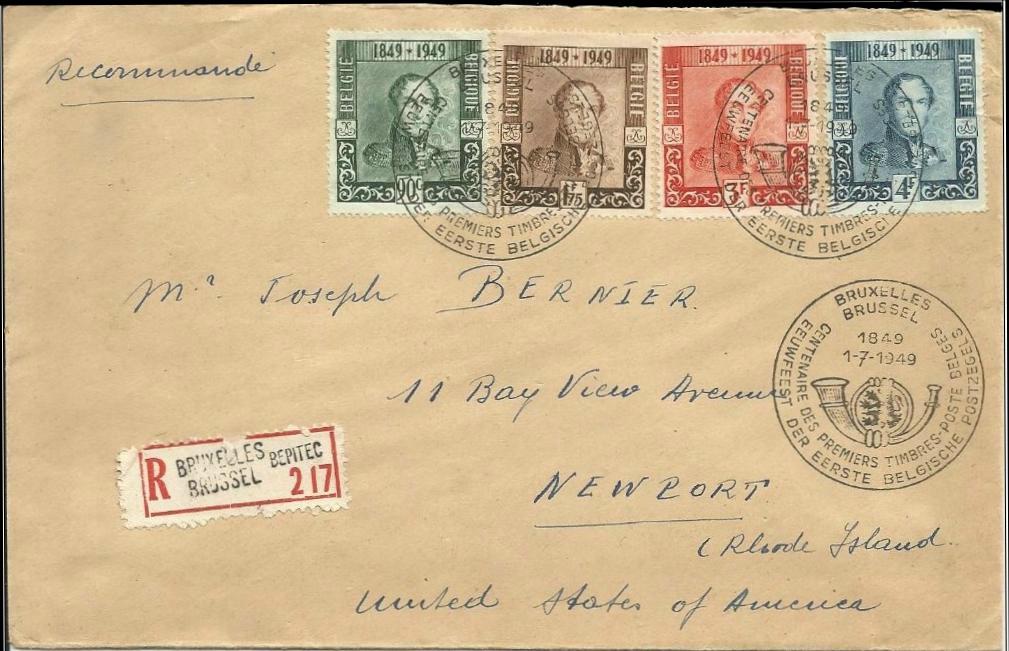 Recommandé
1849 * 1949
BELGIE
BELGIQUE
90c
1849 * 1949
BELGIQUE
BELGIE
1F75
1849 * 1949
BELGIE
BELGIQUE
3F
1849 * 1949
BELGIQUE
BELGIE
4F
PREMIERS TIMBRES-
EERSTE BELGISCHE
PREMIERS TIMBRES-
EERSTE BELGISCHE
Mr Joseph BERNIER
11 Bay View Avenue
NEWPORT
(Rhode Island
United States of America
BRUXELLES
BRUSSEL
1849
1-7-1949
CENTENAIRE DES PREMIERS TIMBRES-POSTE BELGES
EEUWFEEST DER EERSTE BELGISCHE POSTZEGELS
R BRUXELLES BEPITEC
BRUSSEL 217